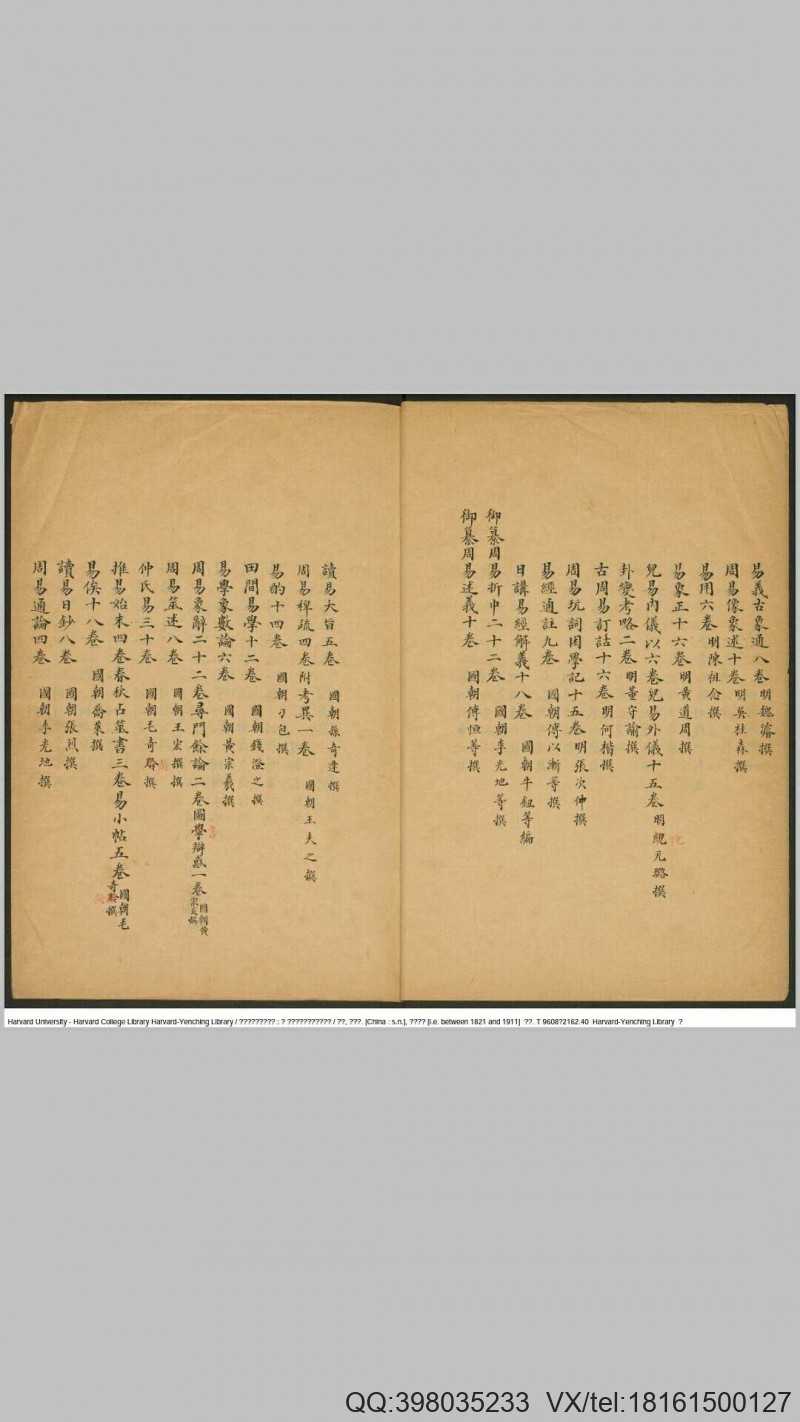 易義古象通八卷明魏濬撰
周易像象述十卷明吳桂森撰
易用六卷明陳祖念撰
易象正十六卷明黃道周撰
兒易內儀以六卷兒易外儀十五卷明倪元璐撰
卦變考略二卷明董守諭撰
古周易訂詁十六卷明何楷撰
周易玩詞困學記十五卷明張次仲撰
易經通註九卷 國朝傅以漸等撰
日講易經解義十八卷 國朝牛鈕等編
御纂周易折中二十二卷 國朝李光地等撰
御纂周易述義十卷 國朝傅恒等撰
讀易大旨五卷 國朝孫奇逢撰
周易稗疏四卷附考異一卷 國朝王夫之撰
易酌十四卷 國朝刁包撰
田間易學十二卷 國朝錢澄之撰
易學象數論六卷 國朝黃宗羲撰
周易象辭二十二卷尋門餘論二卷圖學辯惑一卷 國朝黃宗炎撰
周易筮述八卷 國朝王宏撰撰
仲氏易三十卷 國朝毛奇齡撰
推易始末四卷春秋占筮書三卷易小帖五卷 國朝毛奇齡撰
易俟十八卷 國朝喬萊撰
讀易日鈔八卷 國朝張烈撰
周易通論四卷 國朝李光地撰
Harvard University - Harvard College Library Harvard-Yenching Library / ????????? : ? ??????????? / ??, ???. [China : s.n.], ???? [i.e. between 1821 and 1911] ??. T 9608?2162.40 Harvard-Yenching Library ?
QQ:398035233 VX/tel:18161500127